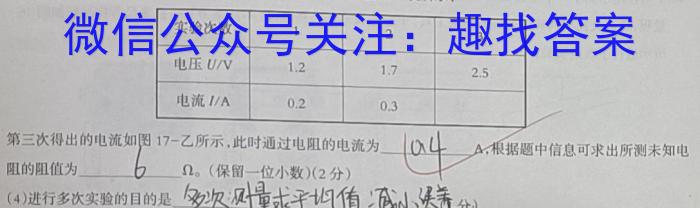 微信公众号关注：趣找答案
实验次数 1 2
电压 U/V 1.2 1.7 2.5
电流 I/A 0.2 0.3
第三次得出的电流如图17-乙所示,此时通过电阻的电流为 0.4 A,根据题中信息可求出所测未知电
阻的阻值为 6 Ω。(保留一位小数)(2分)
(4)进行多次实验的目的是 多次测量求平均值,减小误差 分)